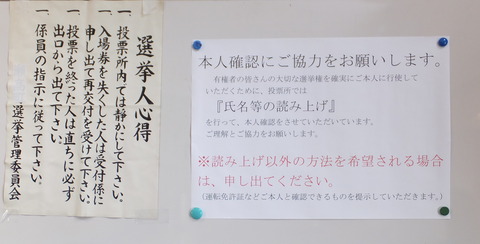 選挙人心得
一、投票所内では静かにして下さい。
一、入場券を失くした人は受付係に
申し出て再交付を受けて下さい。
一、投票を終った人は直ちに必ず
出口から出て下さい。
一、係員の指示に従って下さい。
選挙管理委員会
本人確認にご協力をお願いします。
有権者の皆さんの大切な選挙権を確実にご本人に行使して
いただくために、投票所では
『氏名等の読み上げ』
を行って、本人確認をさせていただいています。
ご理解とご協力をお願いします。
※読み上げ以外の方法を希望される場合
は、申し出てください。
(運転免許証などご本人と確認できるものを提示していただきます。)